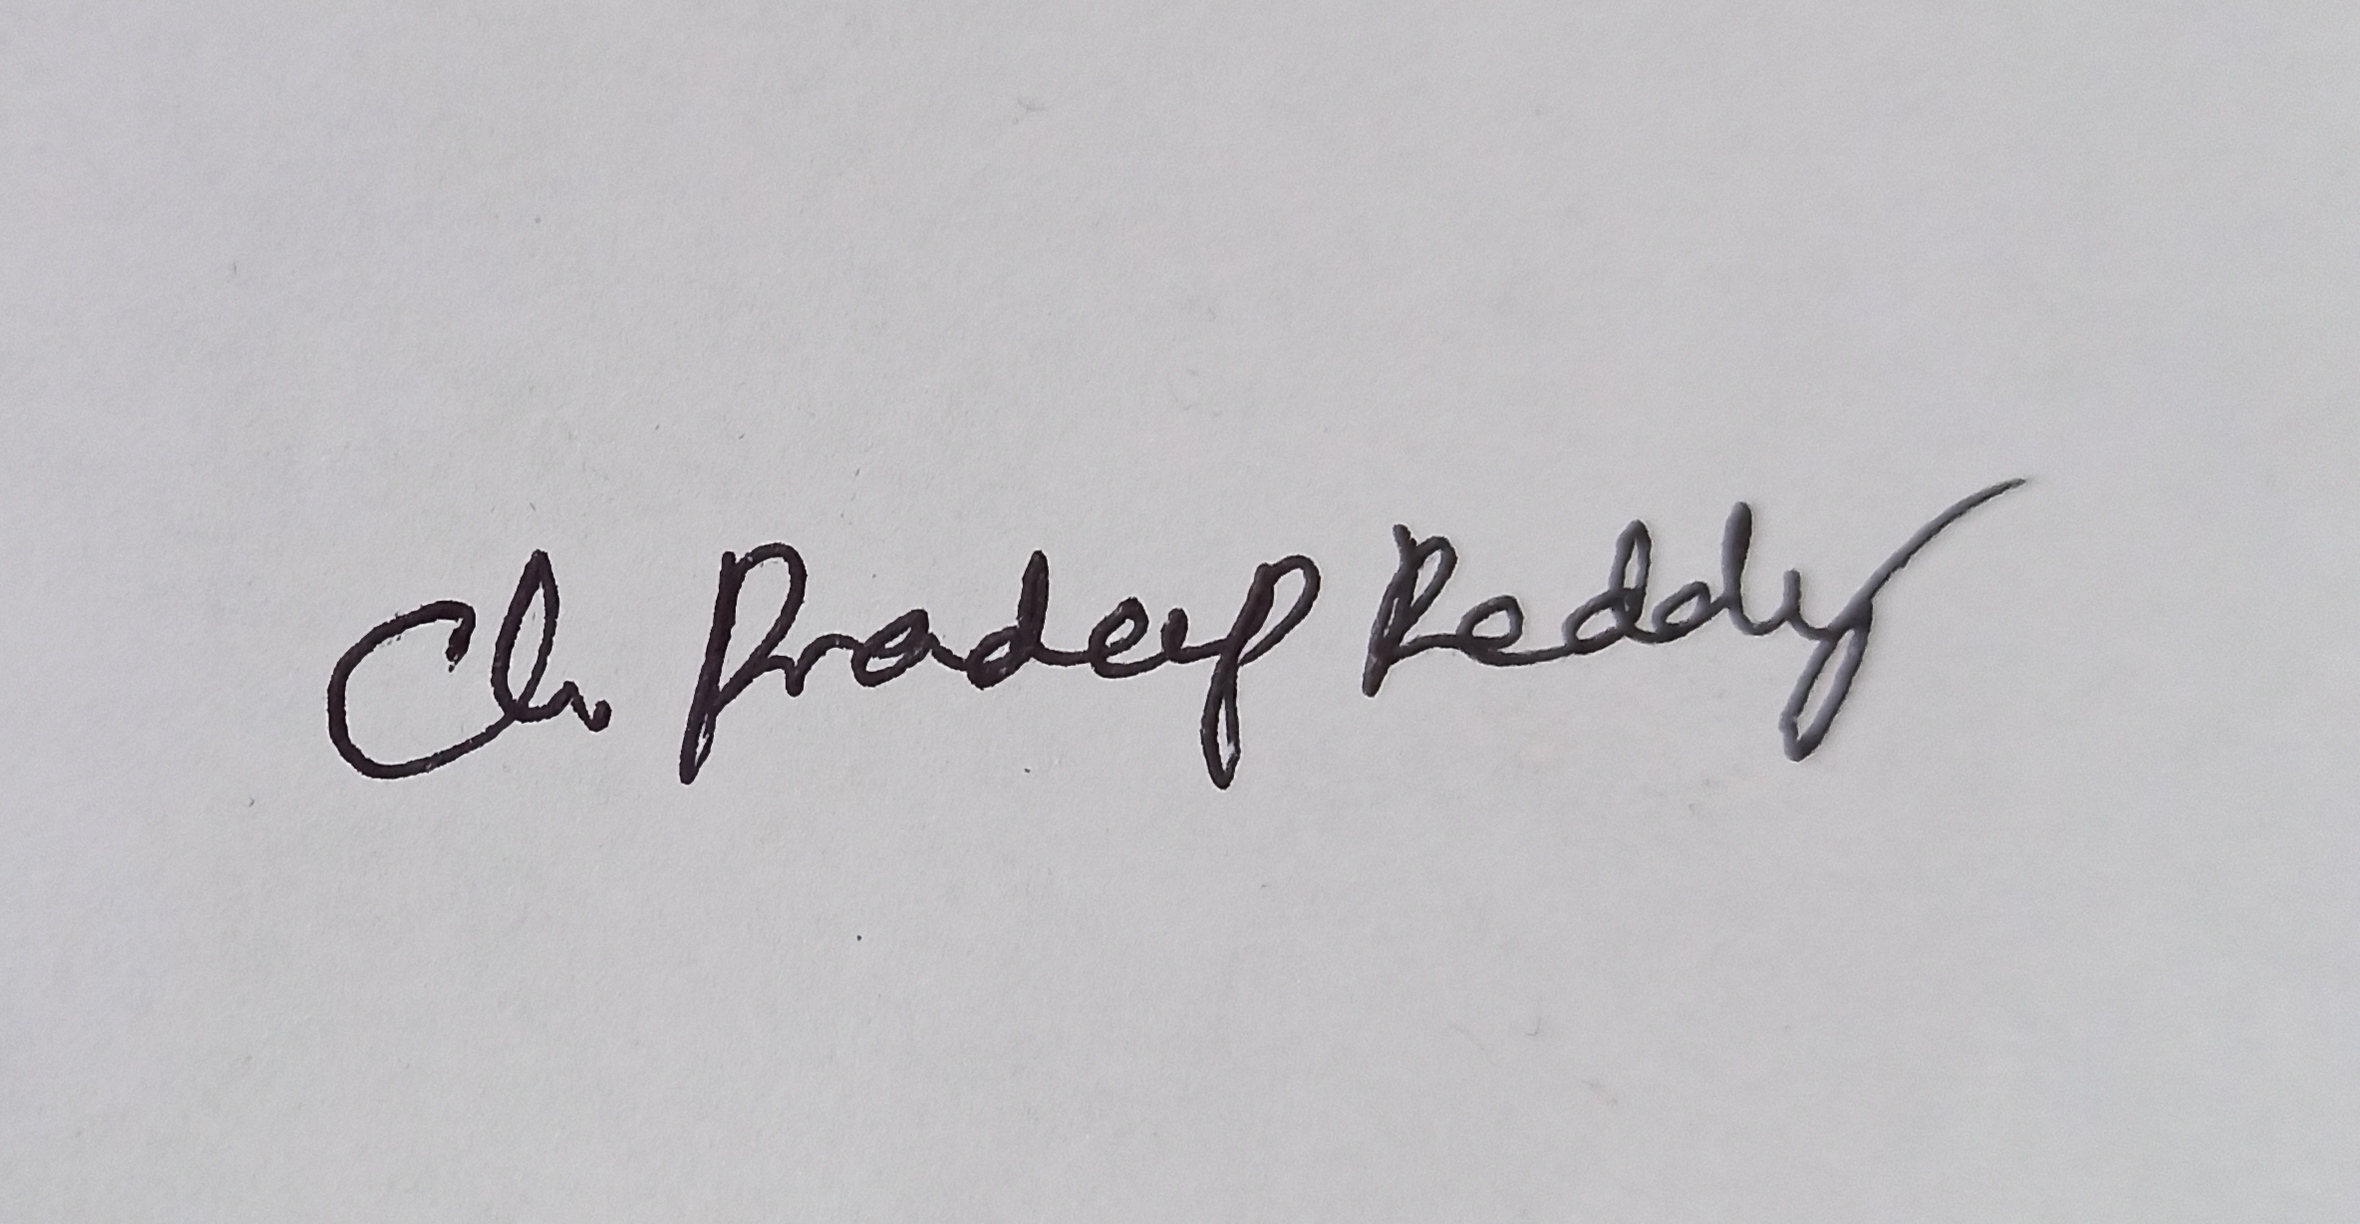 Ch. Pradeep Reddy